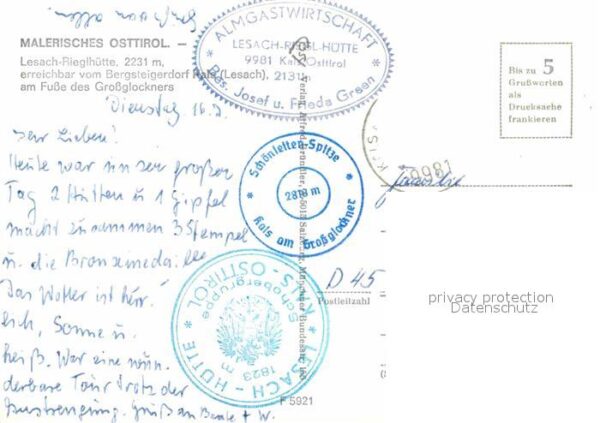 MALERISCHES OSTTIROL. –
Lesach-Rieglhütte, 2231 m,
erreichbar vom Bergsteigerdorf Kals (Lesach),
am Fuße des Großglockners
Dienstag 16.
Heute war unser großer
Tag 2 Hütten u 1 Gipfel
macht zusammen 3 Stempel
u. die Bronzemedaille
Das Wetter ist herr-
lich, Sonne u.
heiß. War eine wun-
derbare Tour trotz der
Anstrengung. Gruß an Beate + W.
ALMGASTWIRTSCHAFT
LESACH-RIEGL-HÜTTE
9981 Kals, Osttirol
2131
Bes. Josef u. Frieda Green
Schönleiten-Spitze
2818 m
Kals am Großglockner
LESACH-HÜTTE
KALS-OSTTIROL
Schobergruppe
1823 m
F 5921
Bis zu 5
Grußworten
als
Drucksache
frankieren
9981
D 45
Postleitzahl
privacy protection
Datenschutz